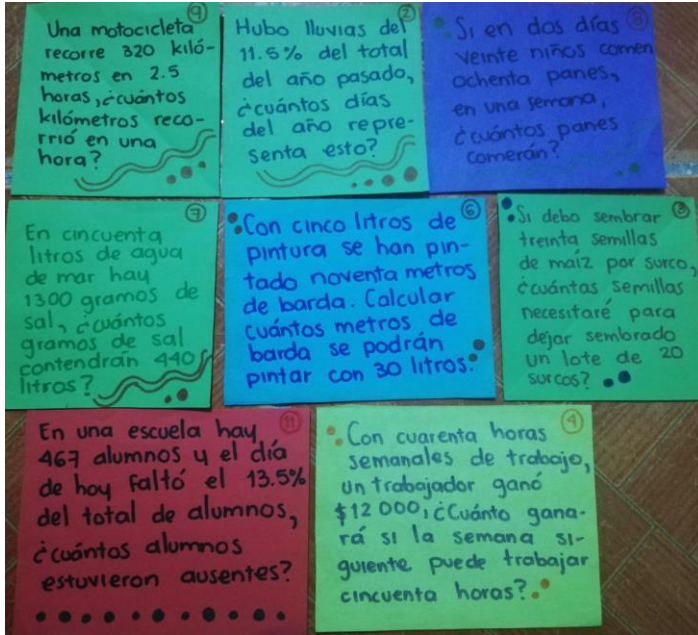 9
Una motocicleta
recorre 320 kiló-
metros en 2.5
horas, ¿cuántos
kilómetros reco-
rrió en una
hora?
2
Hubo lluvias del
11.5% del total
del año pasado,
¿cuántos días
del año repre-
senta esto?
8
Si en dos días
veinte niños comen
ochenta panes,
en una semana,
¿cuántos panes
comerán?
7
En cincuenta
litros de agua
de mar hay
1300 gramos de
sal, ¿cuántos
gramos de sal
contendrán 440
litros?
6
Con cinco litros de
pintura se han pin-
tado noventa metros
de barda. Calcular
cuántos metros de
barda se podrán
pintar con 30 litros.
3
Si debo sembrar
treinta semillas
de maíz por surco,
¿cuántas semillas
necesitaré para
dejar sembrado
un lote de 20
surcos?
11
En una escuela hay
467 alumnos y el día
de hoy faltó el 13.5%
del total de alumnos,
¿cuántos alumnos
estuvieron ausentes?
4
Con cuarenta horas
semanales de trabajo,
un trabajador ganó
$12 000, ¿Cuánto gana-
rá si la semana si-
guiente puede trabajar
cincuenta horas?